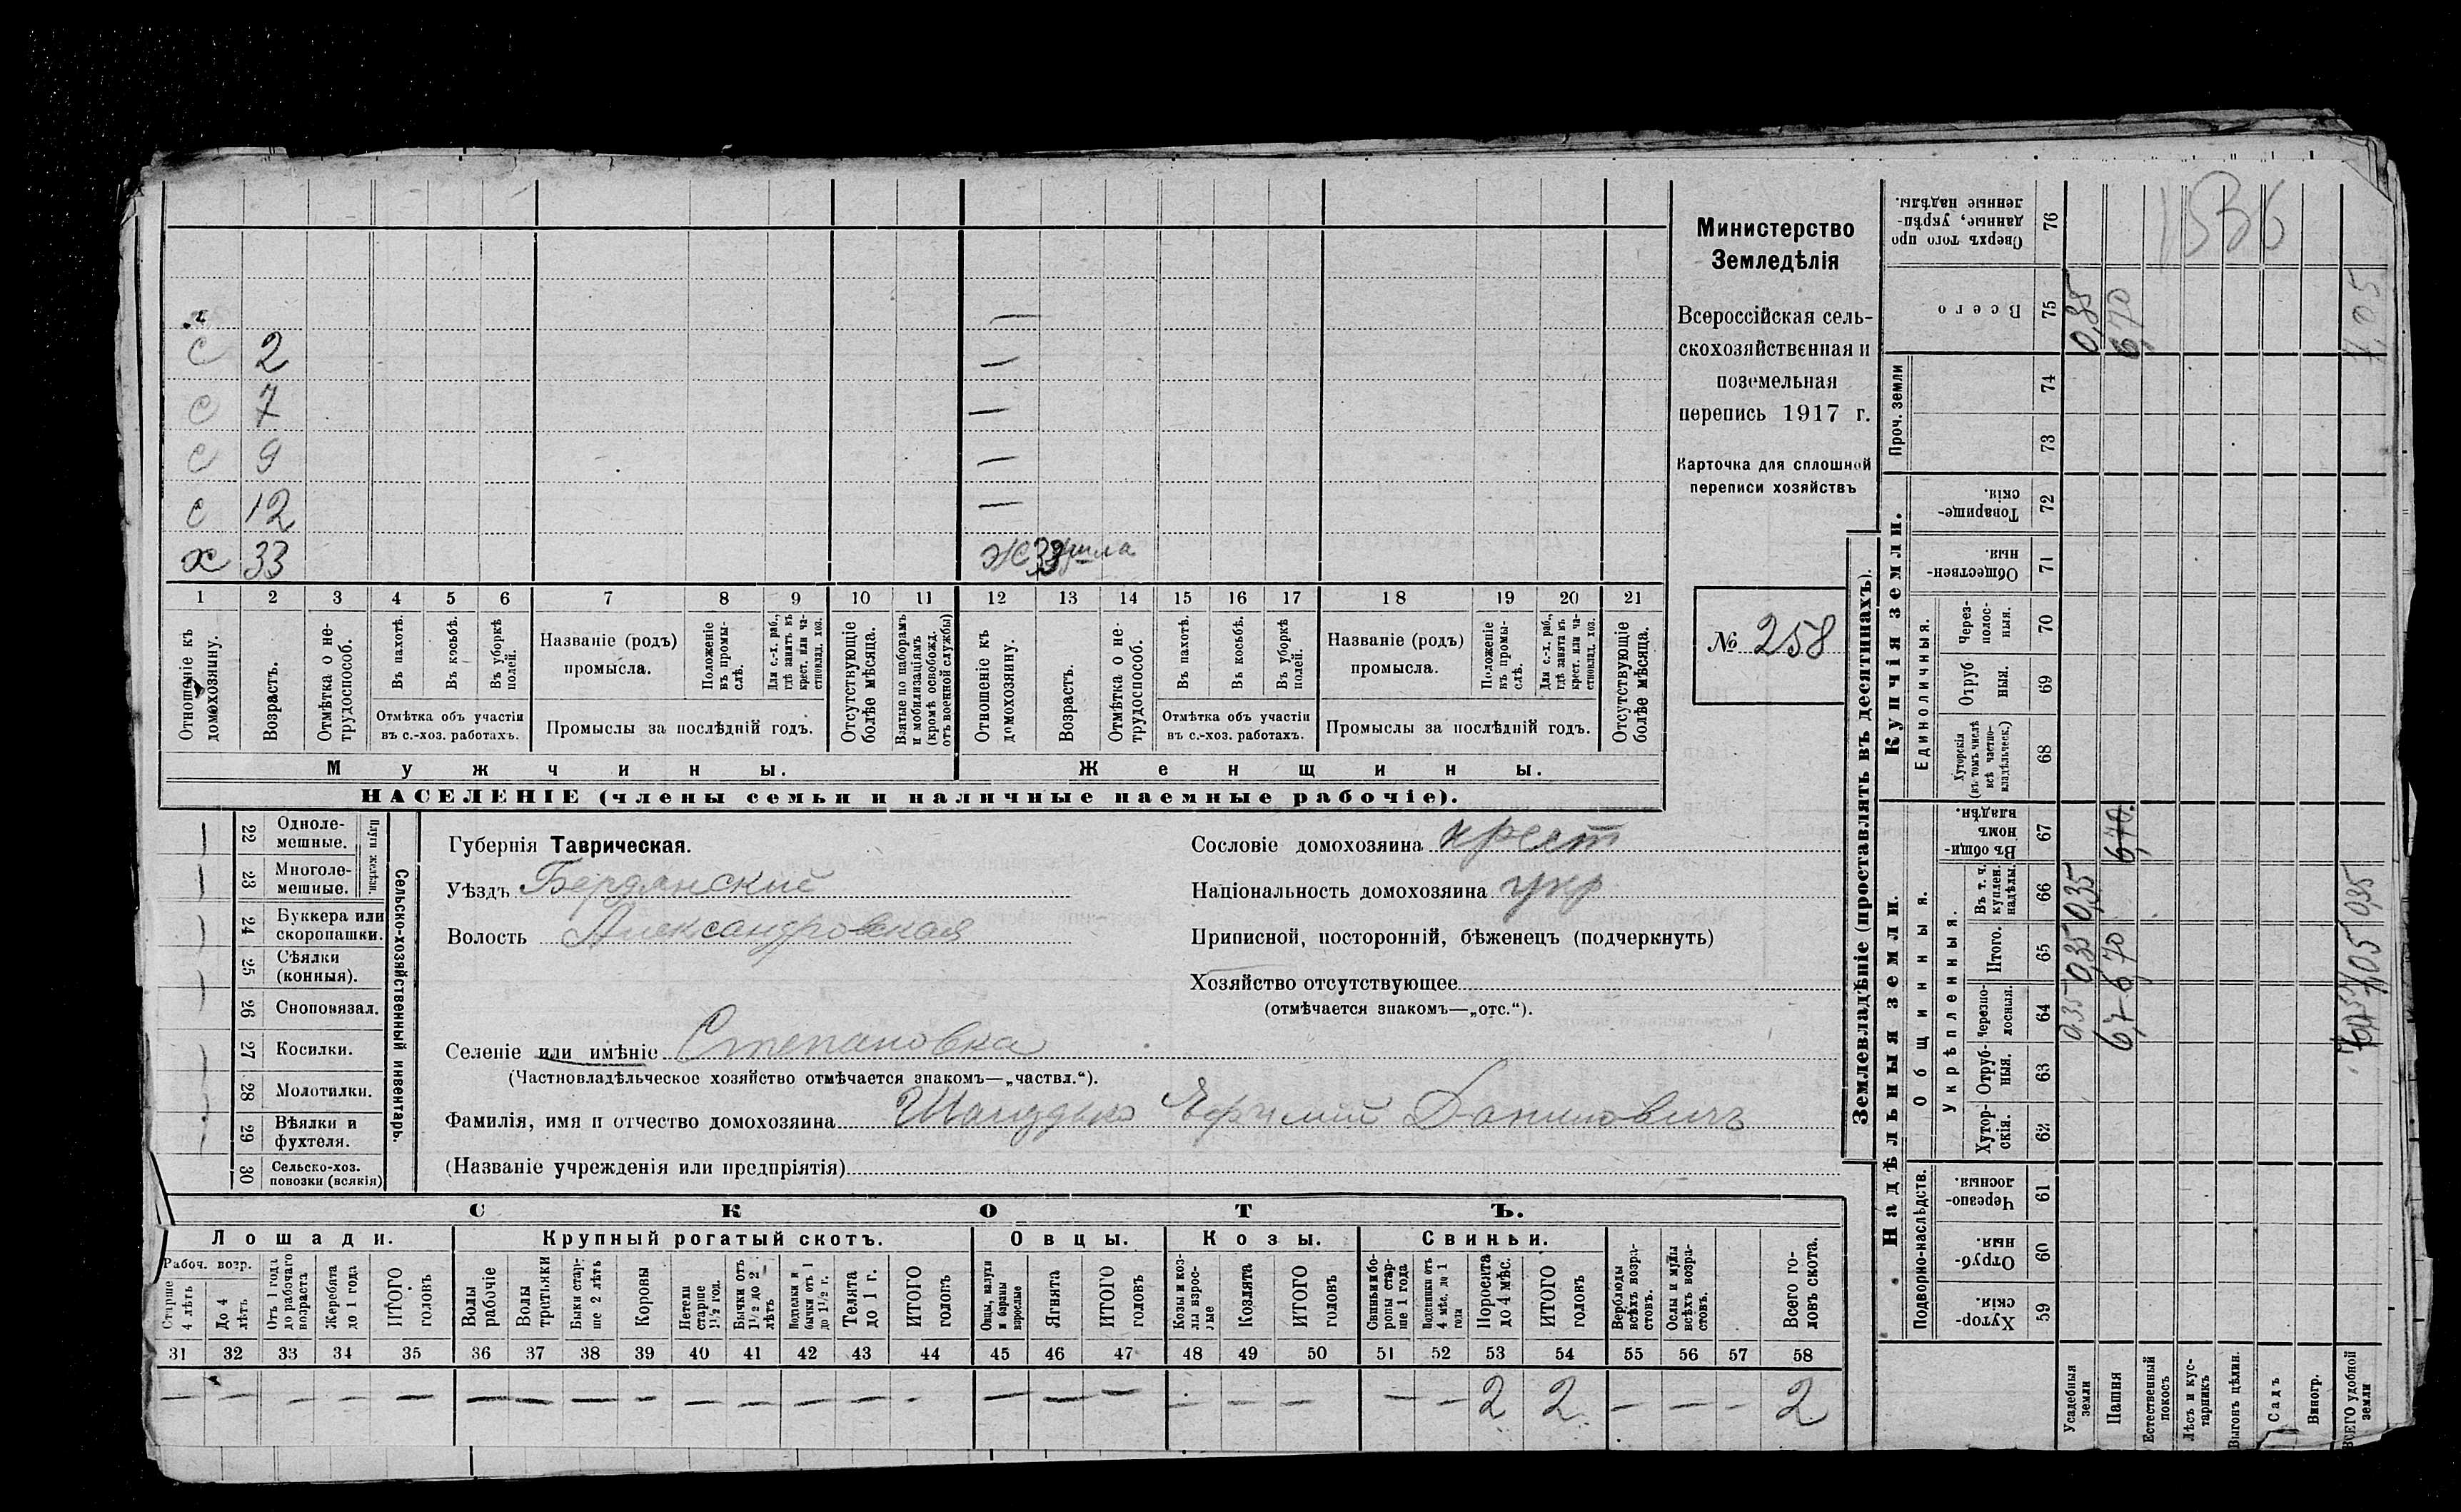 с 2
с 7
с 9
с 12
х 33 ж 33
1 2 3 4 5 6 7 8 9 10 11 12 13 14 15 16 17 18 19 20 21
Отношеніе къ домохозяину.
Возрастъ.
Отмѣтка о нетрудоспособ.
Въ пахотѣ.
Въ косьбѣ.
Въ уборкѣ полей.
Отмѣтка объ участіи въ с.-хоз. работахъ.
Названіе (родъ) промысла.
Положеніе въ промыслѣ.
Для с.-х. раб., гдѣ занятъ въ крест. или частновлад. хоз.
Промыслы за послѣдній годъ.
Отсутствующіе болѣе мѣсяца.
Взятые по наборамъ и мобилизаціямъ (кромѣ освобожд. отъ военной службы)
Отношеніе къ домохозяину.
Возрастъ.
Отмѣтка о нетрудоспособ.
Въ пахотѣ.
Въ косьбѣ.
Въ уборкѣ полей.
Отмѣтка объ участіи въ с.-хоз. работахъ.
Названіе (родъ) промысла.
Положеніе въ промыслѣ.
Для с.-х. раб., гдѣ занята въ крест. или частновлад. хоз.
Промыслы за послѣдній годъ.
Отсутствующіе болѣе мѣсяца.
Мужчины.
Женщины.
НАСЕЛЕНІЕ (члены семьи и наличные наемные рабочіе).
Министерство
Земледѣлія
Всероссійская сель-
скохозяйственная и
поземельная
перепись 1917 г.
Карточка для сплошной
переписи хозяйствъ
№ 258
Сельско-хозяйственный инвентарь.
Плуги желѣзн.
22 Одноле-
мешные.
23 Многоле-
мешные.
24 Буккера или
скоропашки.
25 Сѣялки
(конныя).
26 Сноповязал.
27 Косилки.
28 Молотилки.
29 Вѣялки и
фухтеля.
30 Сельско-хоз.
повозки (всякія)
Губернія Таврическая.
Уѣздъ Бердянскій
Волость Александровская
Селеніе или имѣніе Степановка
(Частновладѣльческое хозяйство отмѣчается знакомъ—„частвл.“).
Фамилія, имя и отчество домохозяина Ефимій Даниловичъ
(Названіе учрежденія или предпріятія)
Сословіе домохозяина крест
Національность домохозяина укр
Приписной, посторонній, бѣженецъ (подчеркнуть)
Хозяйство отсутствующее
(отмѣчается знакомъ—„отс.“).
СКОТЪ.
Лошади.
Крупный рогатый скотъ.
Овцы.
Козы.
Свиньи.
Рабоч. возр.
Старше 4 лѣтъ
До 4 лѣтъ
Отъ 1 года до рабочаго возраста
Жеребята до 1 года
ИТОГО головъ
Волы рабочіе
Волы третьяки
Быки старше 2 лѣтъ
Коровы
Нетели старше 1½ год.
Бычки отъ 1½ до 2 лѣтъ
Подтелки и бычки отъ 1 до 1½ г.
Телята до 1 г.
ИТОГО головъ
Овцы, валухи и бараны взрослые
Ягнята
ИТОГО головъ
Козы и козлы взрослые
Козлята
ИТОГО головъ
Свиньи и боровы старше 1 года
Подсвинки отъ 4 мѣс. до 1 года
Поросята до 4 мѣс.
ИТОГО головъ
Верблюды всѣхъ возрастовъ.
Ослы и мулы всѣхъ возрастовъ.
Всего головъ скота.
31 32 33 34 35 36 37 38 39 40 41 42 43 44 45 46 47 48 49 50 51 52 53 54 55 56 57 58
— — — — — — — — — — — — — — — — — — — — — — 2 2 — — — 2
Землевладѣніе (проставлять въ десятинахъ).
Надѣльныя земли.
Купчія земли.
Проч. земли
Подворно-наслѣдств.
Общинныя.
Укрѣпленныя.
Единоличныя.
Хуторскія. 59
Отрубныя. 60
Черезполосныя. 61
Хуторскія. 62
Отрубныя. 63
Черезполосныя. 64
Итого. 65
Въ т. ч. куплен. надѣлы. 66
Въ общинномъ владѣн. 67
Хуторскія (въ томъ числѣ всѣ частновладѣльческ.) 68
Отрубныя. 69
Черезполосныя. 70
Общественныя. 71
Товарищескія. 72
73
74
Всего 75
Сверхъ того проданные, укрѣпленные надѣлы. 76
Усадебныя земли 0,35 0,35 0,35 0,35
Пашня 6,7 6,70 6,70 6,70
Естественный покосъ
Лѣсъ и кустарникъ
Выгонъ цѣлин.
Садъ
Виногр.
ВСЕГО удобной земли 7,05 7,05 0,35 7,05
1536